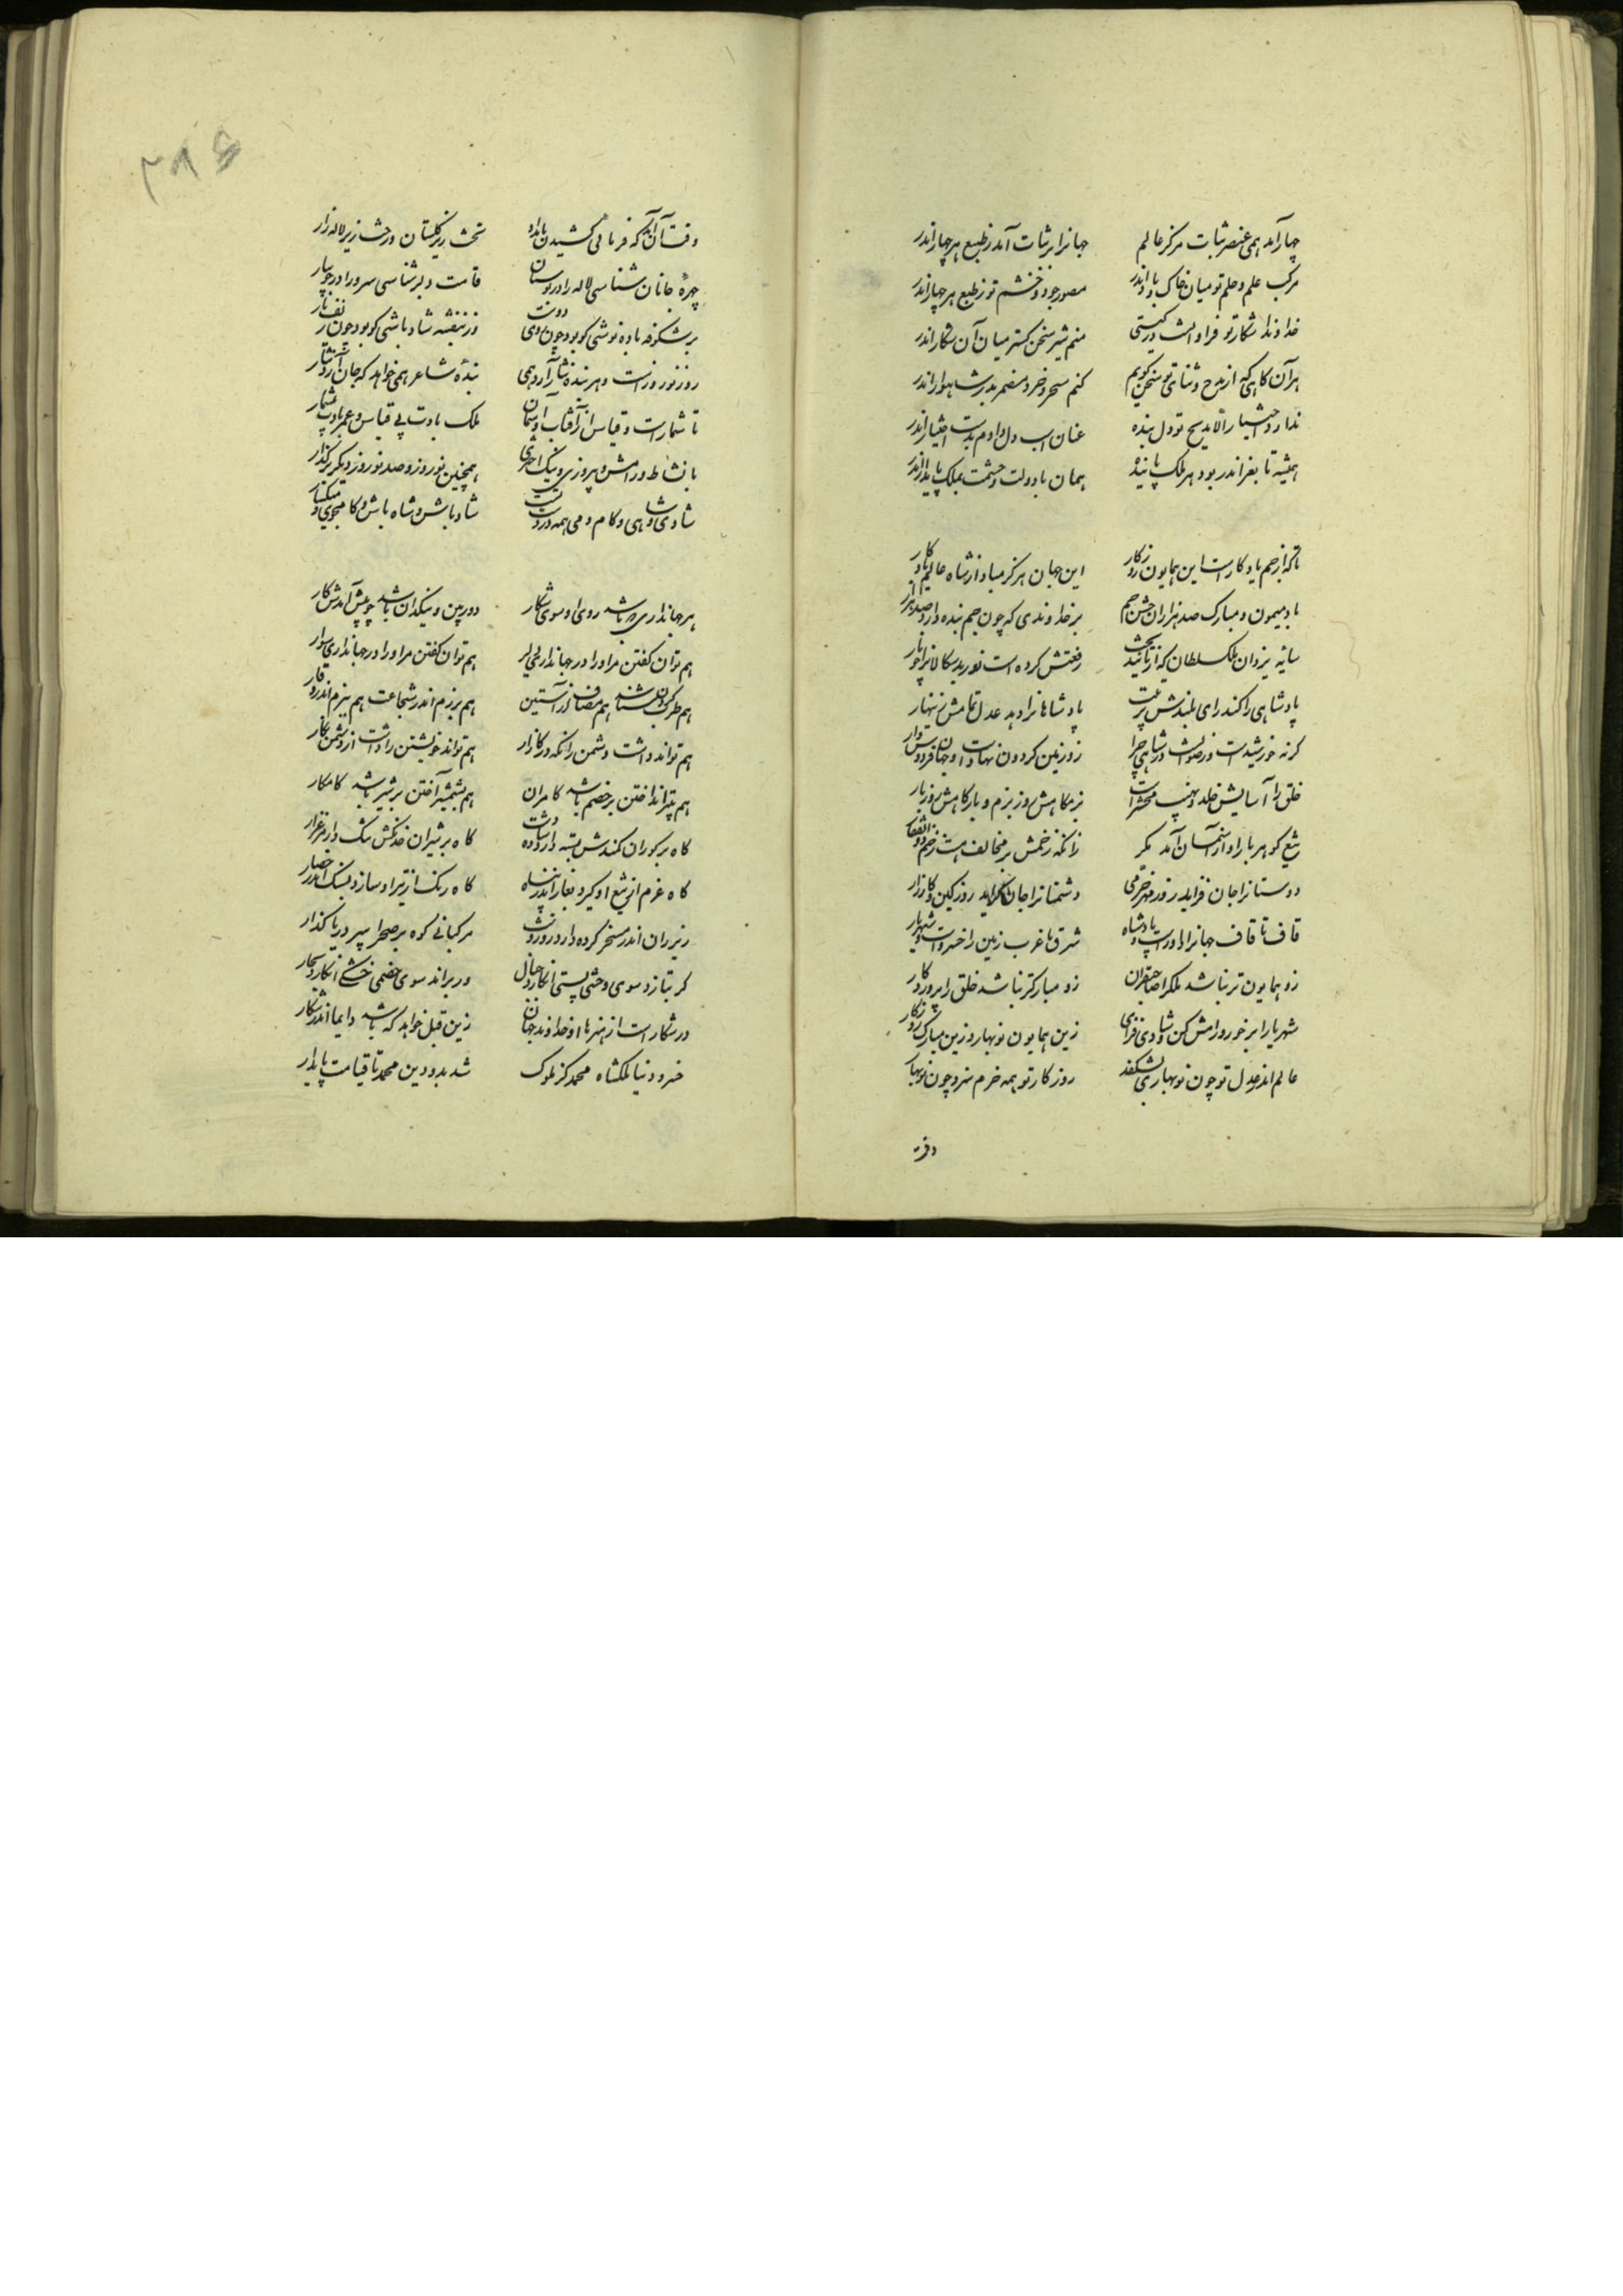 چهار آمد همی عنصر ثبات مرکز عالم جهانرا بر ثبات آمد ز طبع هر چهار اندر
مرکب علم و حلم تو میان خاک و باد اندر مصور جود و خشم تو ز طبع هر چهار اندر
خداوندا شکار تو فراوانست در گیتی منم شیر سخن گستر میان آن شکار اندر
هر آن گاهی که از مدح و ثنای تو سخن گویم کنم سحر و خرد مضمر بدر شاهوار اندر
ندارد اختیار الا مدیح تو دل بنده عنان اسب دل دادم بدست اختیار اندر
همیشه تا بغز اندر بود هر ملک پاینده همان با دولت و حشمت بملک پایدار اندر
تا که از جم یادگارست این همایون روزگار این جهان هرگز مباد از شاه عالم یادگار
باد میمون و مبارک صد هزاران جشن جم بر خداوندی که چون جم بنده دارد صد هزار
سایه یزدان ملک سلطان که از تأیید بخت رفعتش کرده است نور دیدگانرا
پادشاهی را کند رای بلندش تربیت پادشاهانرا دهد عدل تمامش زینهار
گرنه خورشیدست و رضوانست در شاهی چرا زو زمین گردون نهادست و جهان فردوس وار
خلق را آسایش خلد و نهیب محشرست بزمگاهش روز بزم و بارگاهش روز بار
تیغ گوهر بار او از آسمان آمد مگر زانکه زخمش بر مخالف هست زخم ذوالفقار
دوستانرا جان فزاید روز مهر و خرمی دشمنانرا جان گزاید روز کین و کارزار
قاف تا قاف جهانرا داورست و پادشاه شرق تا غرب زمین را خسروست و شهریار
زو همایون تر نباشد ملک را صاحبقران زو مبارکتر نباشد خلق را پروردگار
شهریارا برخور و رامش کن و شادی فزای زین همایون نوبهار و زین مبارک روزگار
عالم اندر عدل تو چون نوبهاری بشکفد روزگار تو همه خرم سزد چون نوبهار
وقت
وقت آن آمد که فرمائی کشیدن بامداد تخت زیر گلستان و رخت زیر لاله زار
چهرهٔ جانان شناسی لاله را در بوستان قامت دلبر شناسی سرو را در جویبار
بر شکوفه باده نوشی کو بود چون روی دوست وز بنفشه شاد باشی کو بود چون زلف یار
روز نوروزست و هر بنده نثار آرد همی بندهٔ شاعر همی خواهد که جان آرد نثار
تا شمارست و قیاس از آفتاب و آسمان ملک بادت بی قیاس و عمر بادت بی شمار
با نشاط و رامش و پیروزی و نیک اختری همچنین نوروز و صد نوروز دیگر برگذار
شادی و شاهی و کام و می همه در دست تست شاد باش و شاه باش و کام جوی و میگسار
هر جهانداری که باشد روی او سوی شکار دوربین و نیکدان باشد چو پیش آمدش کار
هم توان گفتن مر او را در جهانداری دلیر هم توان گفتن مر او را در جهانداری سوار
هم طرب را می شناسد هم مصاف آراستن هم برزم اندر شجاعت هم ببزم اندر وقار
هم تواند داشت دشمن را نگه در کارزار هم تواند خویشتن را داشت از دشمن بکار
هم بتیر انداختن بر خصم باشد کامران هم بشمشیر آختن بر شیر باشد کامکار
گاه بر گوران کمندش بسته دارد ره دشت گاه بر شیران خدنگش تنگ دارد مرغزار
گاه غرم از تیغ او گیرد بغار اندر پناه گاه رنگ از تیر او سازد بسنگ اندر حصار
زیر ران اندر مسخر کرده دارد روز و شب مرکبانی کوه بر صحرا سپر دریا گذار
گر بتازد سوی وحشی پستی انگارد جبال ور براند سوی خصمی خشکی انگارد بحار
در شکارست از هنرها او خداوند جهان زین قبل خواهد که باشد دایما اندر شکار
خسرو دنیا ملکشاه محمد کز ملوک شد بدو دین محمد تا قیامت پایدار